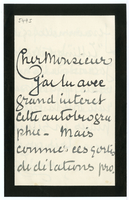 Cher Monsieur
j'ai lu avec
grand intéret
cette autobiogra
phie - Mais
comme ces sortes
de dilations pro